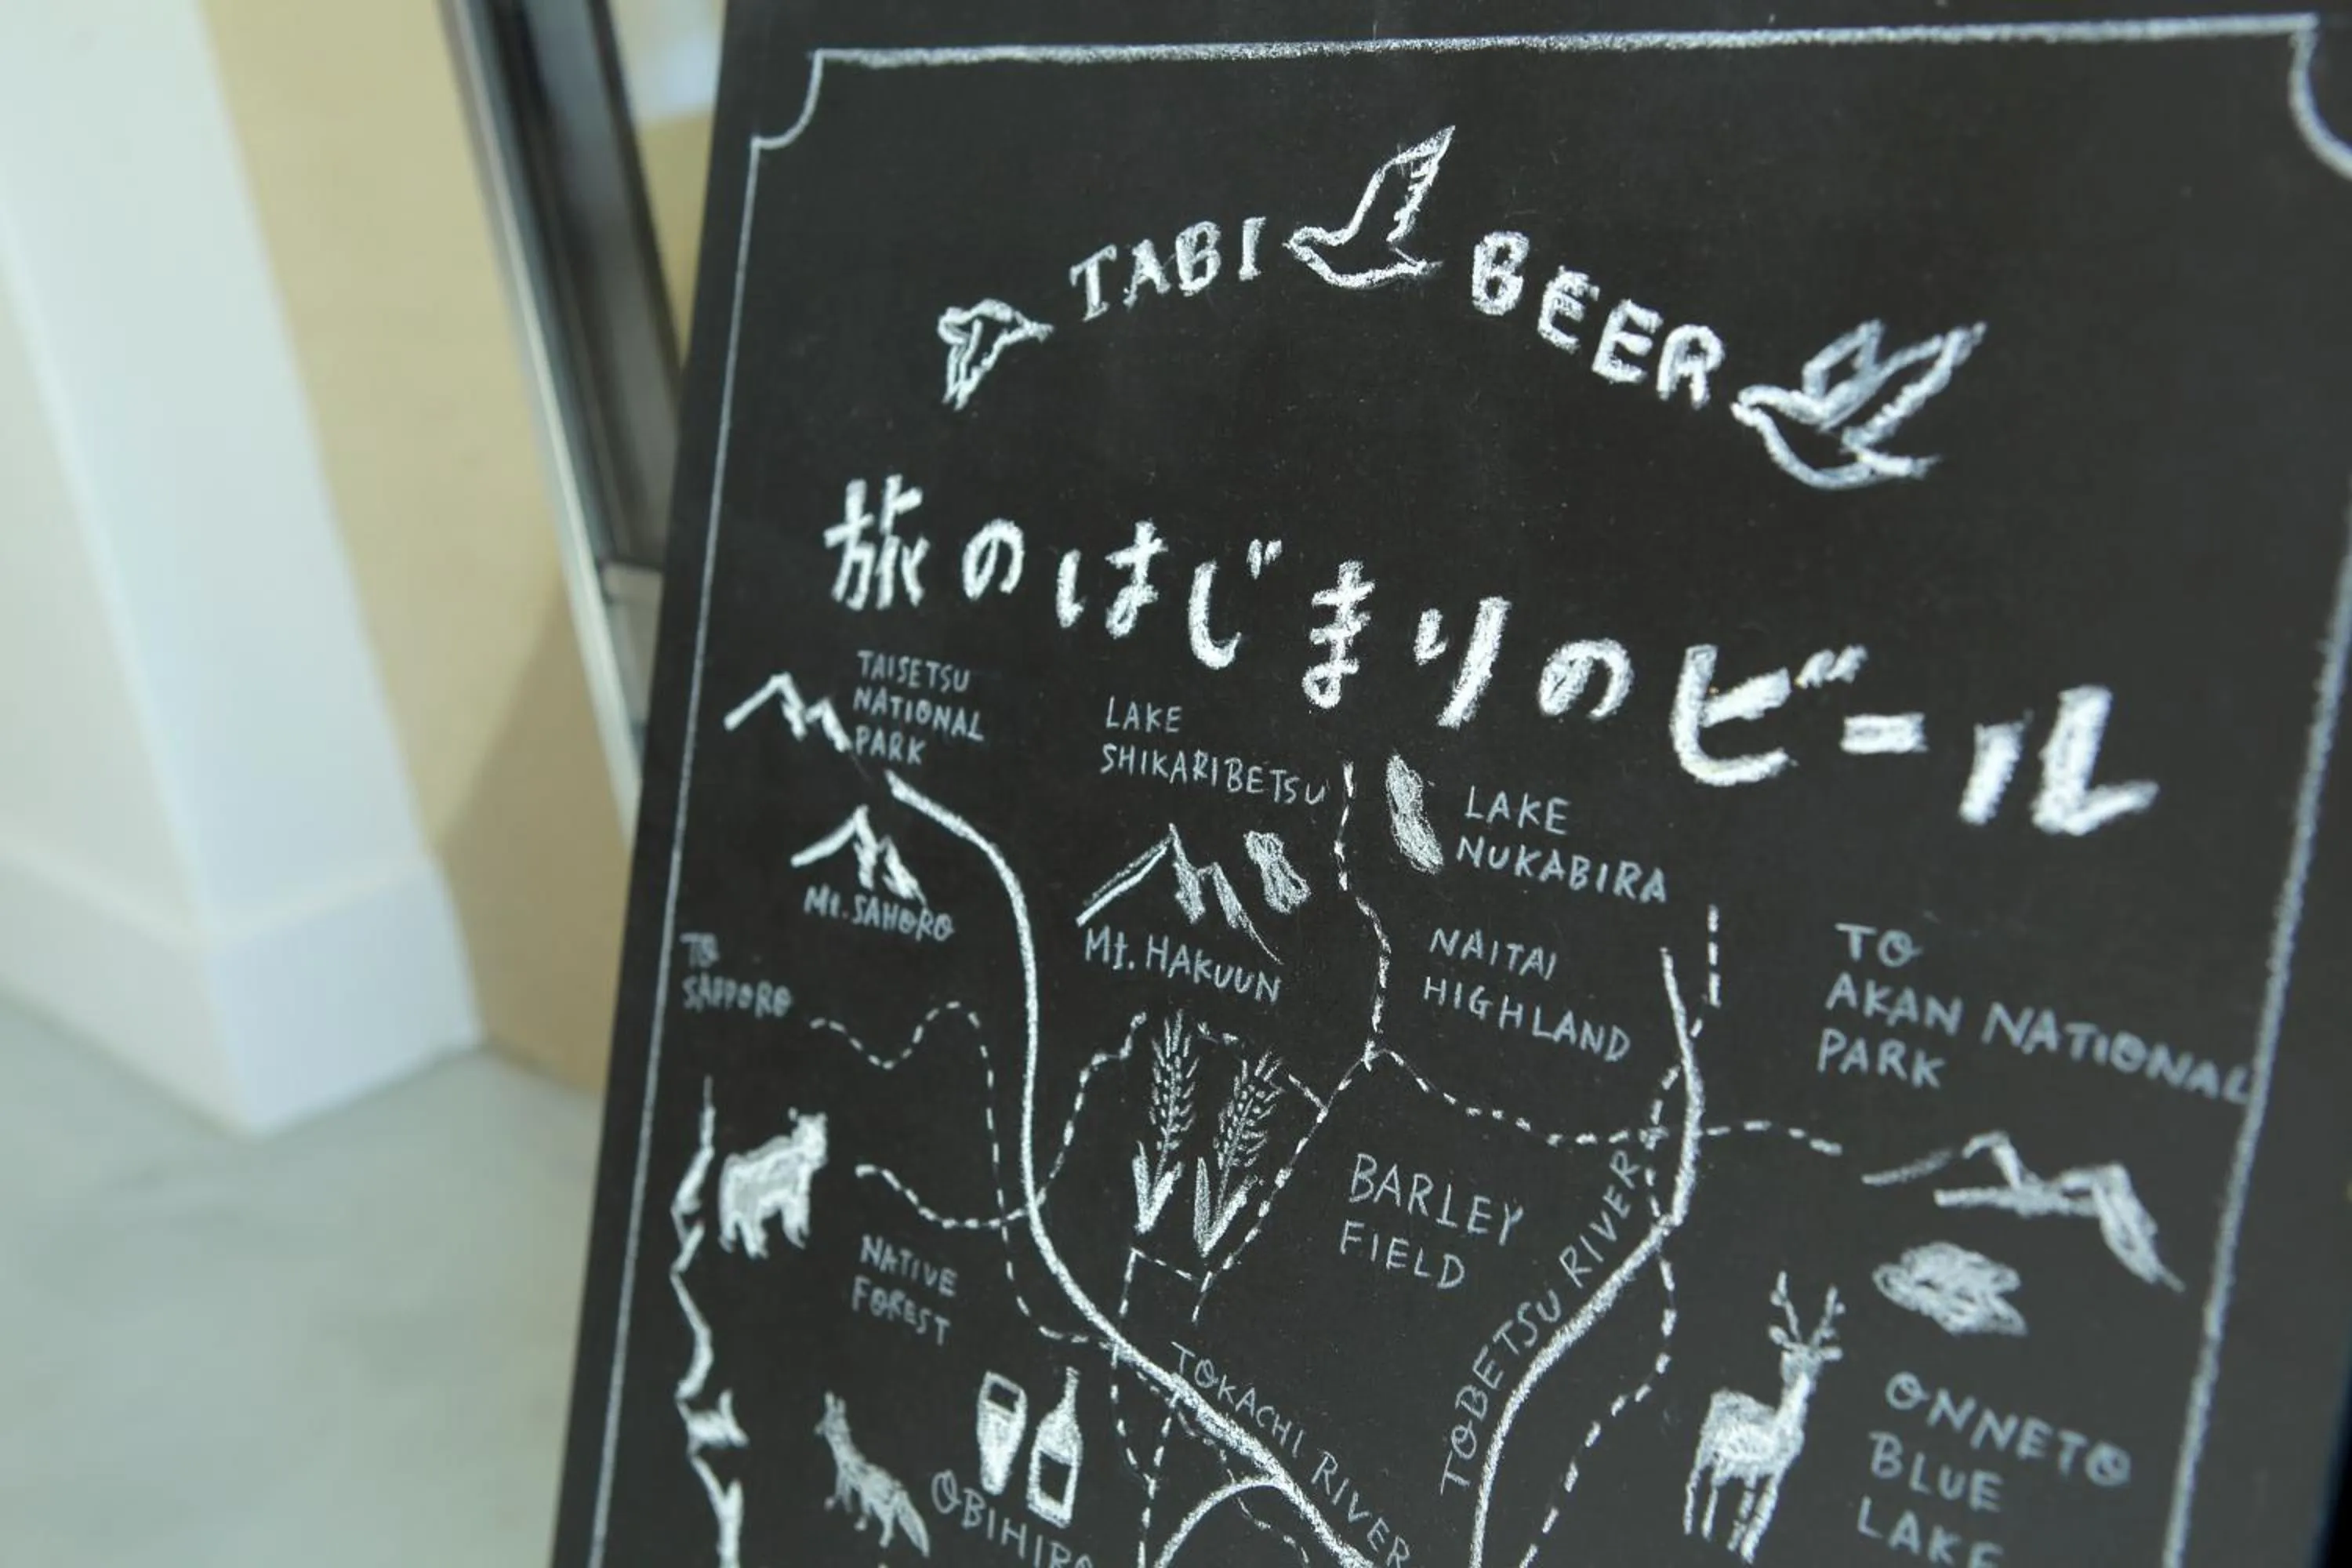 TABI BEER
旅のはじまりのビール
TAISETSU
NATIONAL
PARK
LAKE
SHIKARIBETSU
LAKE
NUKABIRA
Mt. SAHORO
Mt. HAKUUN
NAITAI
HIGHLAND
TO
SAPPORO
TO
AKAN NATIONAL
PARK
BARLEY
FIELD
NATIVE
FOREST
TOBETSU RIVER
TOKACHI RIVER
OBIHIRO
ONNETO
BLUE
LAKE